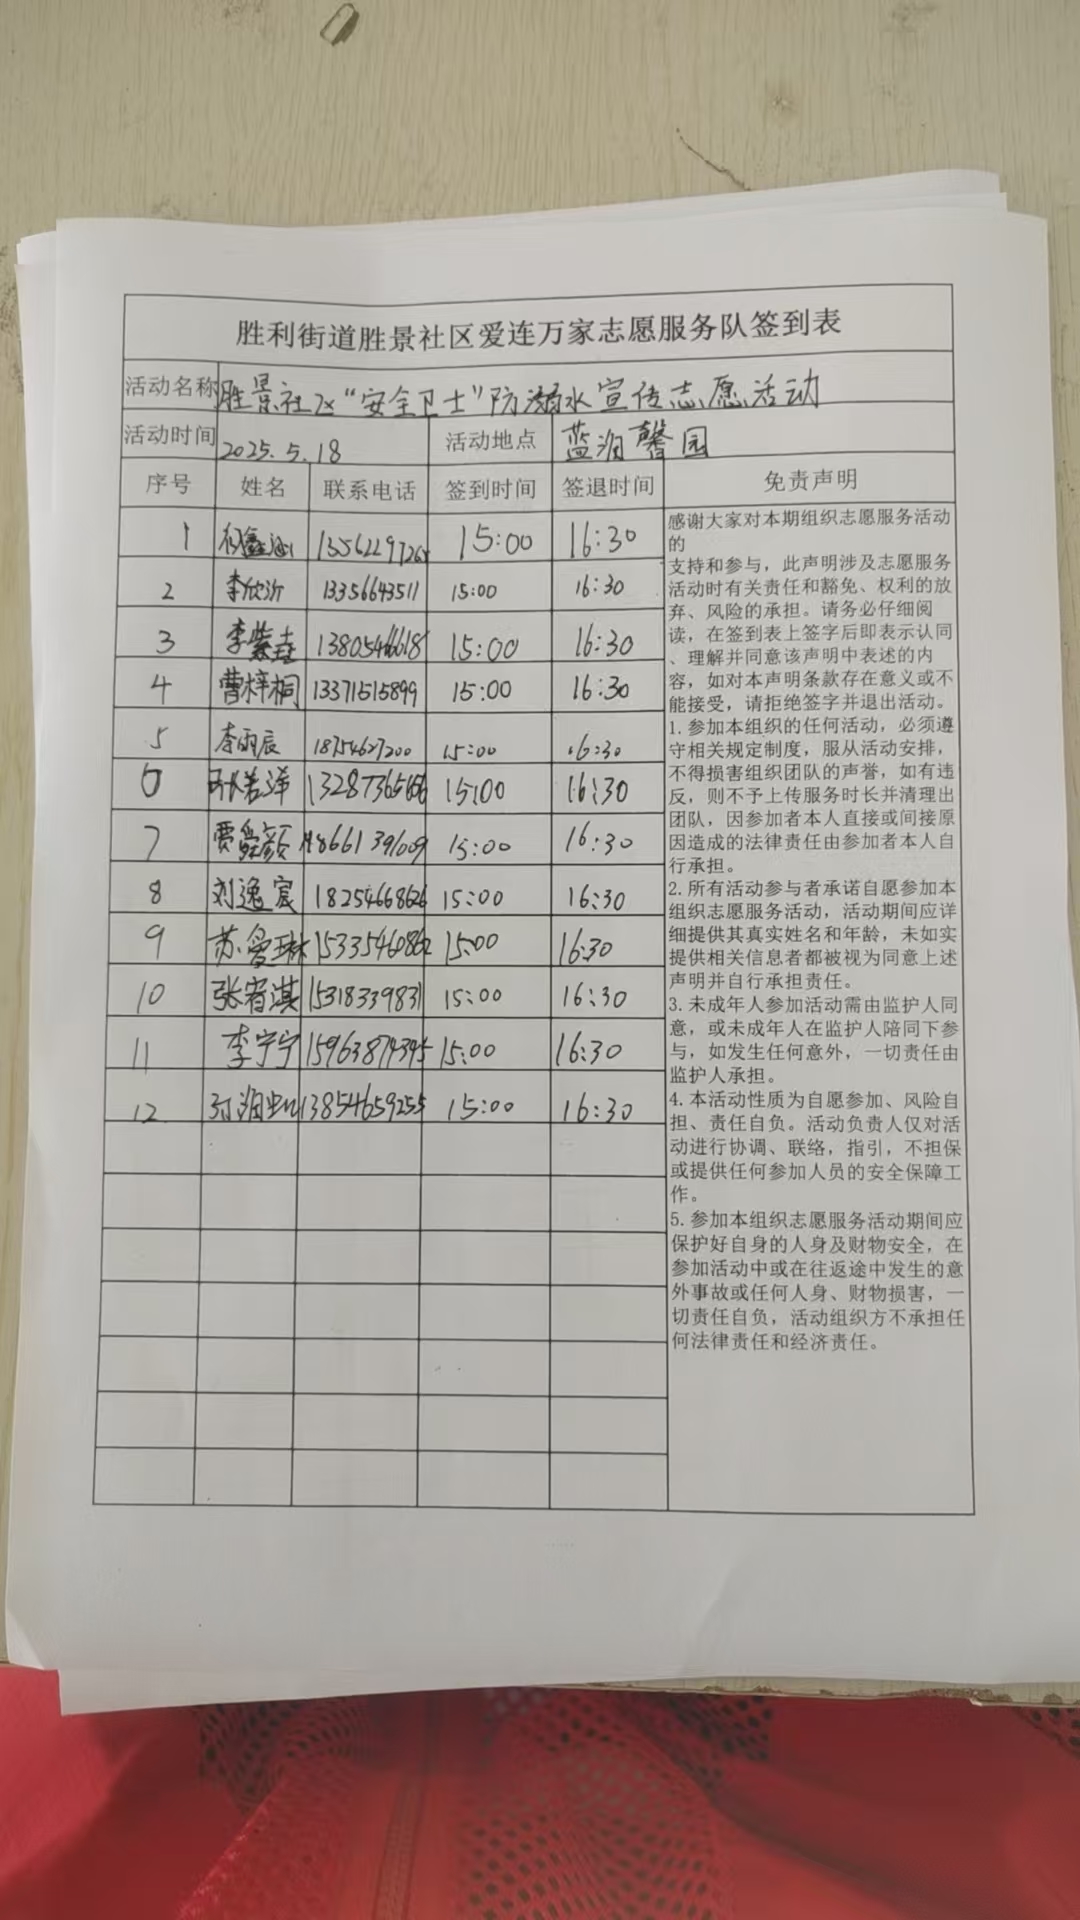 胜利街道胜景社区爱连万家志愿服务队签到表
活动名称 胜景社区“安全卫士”防溺水宣传志愿活动
活动时间 2025.5.18 活动地点 蓝泊馨园
序号 姓名 联系电话 签到时间 签退时间 免责声明
1 15:00 16:30
2 李欣沂 13356643511 15:00 16:30
3 李紫垚 13805466618 15:00 16:30
4 曹梓桐 13371515899 15:00 16:30
5 李雨辰 18754627200 15:00 16:30
6 15:00 16:30
7 贾舜颜 18661391609 15:00 16:30
8 刘逸宸 18254668626 15:00 16:30
9 苏曼琳 15:00 16:30
10 张宥淇 15318339831 15:00 16:30
11 李宁宁 15963874395 15:00 16:30
12 13854659255 15:00 16:30
感谢大家对本期组织志愿服务活动
的
支持和参与，此声明涉及志愿服务
活动时有关责任和豁免、权利的放
弃、风险的承担。请务必仔细阅
读，在签到表上签字后即表示认同
、理解并同意该声明中表述的内
容，如对本声明条款存在意义或不
能接受，请拒绝签字并退出活动。
1.参加本组织的任何活动，必须遵
守相关规定制度，服从活动安排，
不得损害组织团队的声誉，如有违
反，则不予上传服务时长并清理出
团队，因参加者本人直接或间接原
因造成的法律责任由参加者本人自
行承担。
2.所有活动参与者承诺自愿参加本
组织志愿服务活动，活动期间应详
细提供其真实姓名和年龄，未如实
提供相关信息者都被视为同意上述
声明并自行承担责任。
3.未成年人参加活动需由监护人同
意，或未成年人在监护人陪同下参
与，如发生任何意外，一切责任由
监护人承担。
4.本活动性质为自愿参加、风险自
担、责任自负。活动负责人仅对活
动进行协调、联络，指引，不担保
或提供任何参加人员的安全保障工
作。
5.参加本组织志愿服务活动期间应
保护好自身的人身及财物安全，在
参加活动中或在往返途中发生的意
外事故或任何人身、财物损害，一
切责任自负，活动组织方不承担任
何法律责任和经济责任。